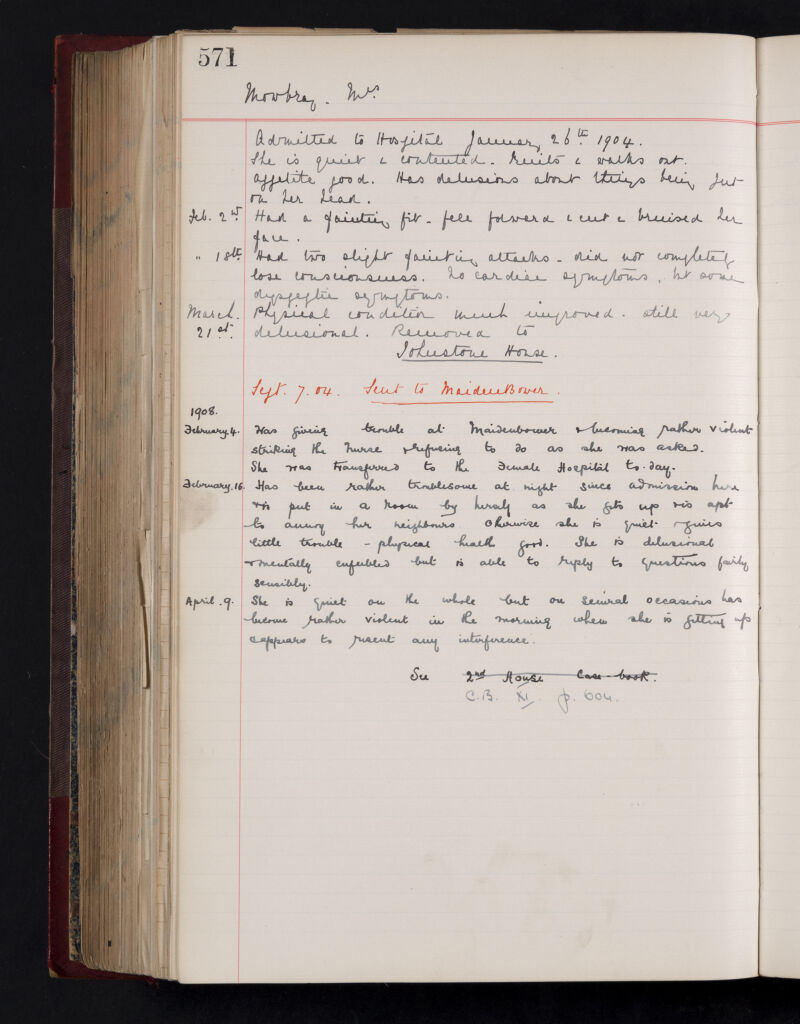 571
Mowbray. Mrs
Admitted to Hospital January 26th 1904.
She is quiet & contented. Knits & walks out.
Appetite good. Has delusions about things being put
on her head.
Feb. 2nd. Had a fainting fit - fell forward & cut & bruised her
face.
" 18th. Had two slight fainting attacks - did not completely
lose consciousness. No cardiac symptoms, but some
dyspeptic symptoms.
March. Physical condition much improved. Still very
21st. delusional. Removed to
Johnstone House.
Sept. 7. 04. Sent to MaidenBower.
1908.
February 4. Was giving trouble at Maidenbower & becoming rather violent
striking the nurse & refusing to do as she was asked.
She was transferred to the Female Hospital to-day.
February. 16. Has been rather troublesome at night since admission here
& is put in a room by herself as she gets up & is apt
to annoy her neighbours otherwise she is quiet & gives
little trouble - physical health good. She is delusional
& mentally enfeebled but is able to reply to questions fairly
sensibly.
April. 9. She is quiet on the whole but on several occasions has
become rather violent in the morning when she is getting up
& appears to resent any interference.
See 2nd House Case-book.
C.B. XI. p. 604.